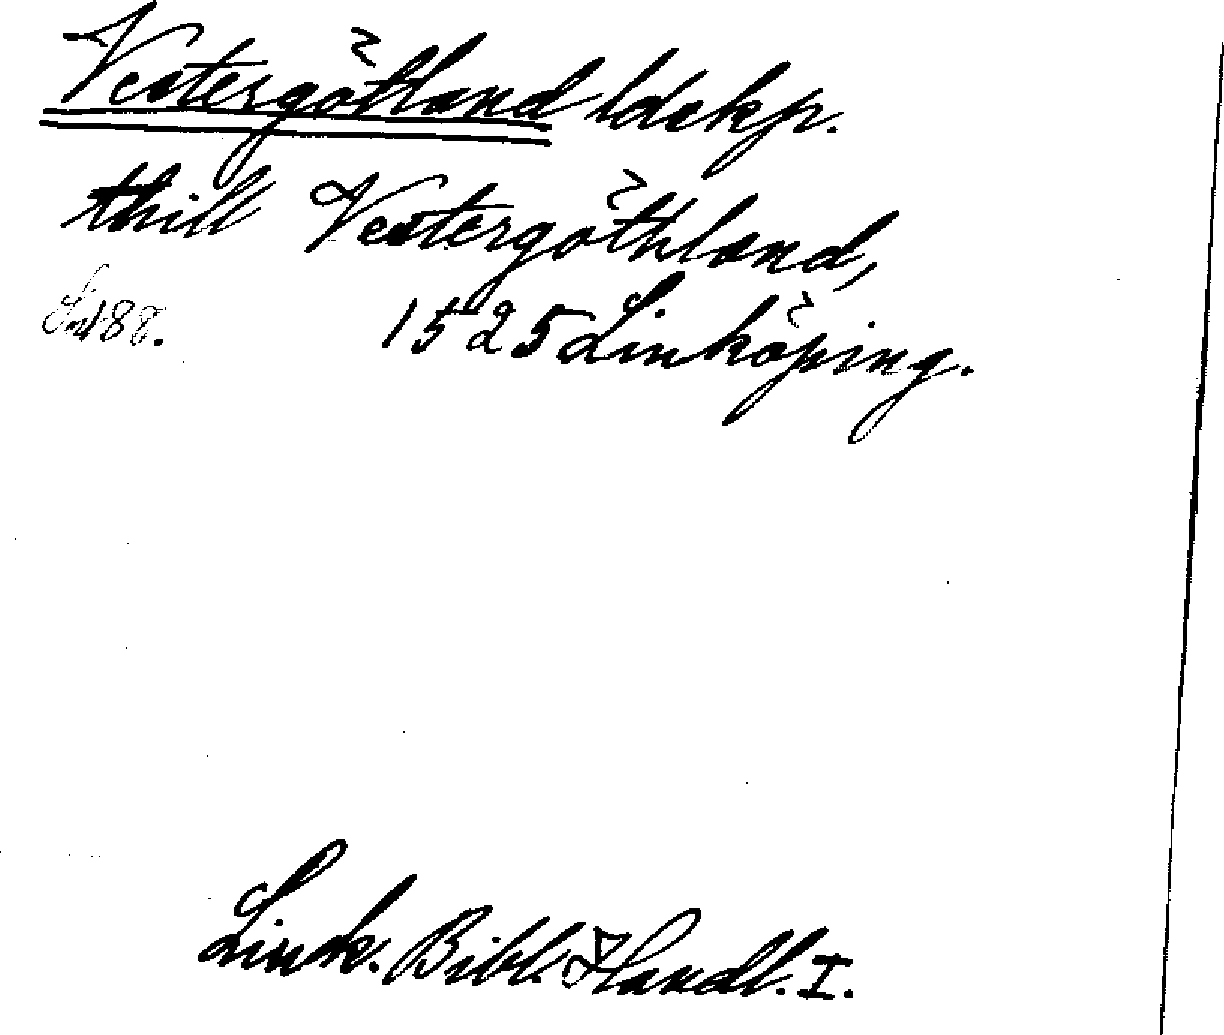 Vestergötland ldskp.
thill Vestergöthland,
188. 1525 Linköping.
Linck. Bibl. Handl. I.